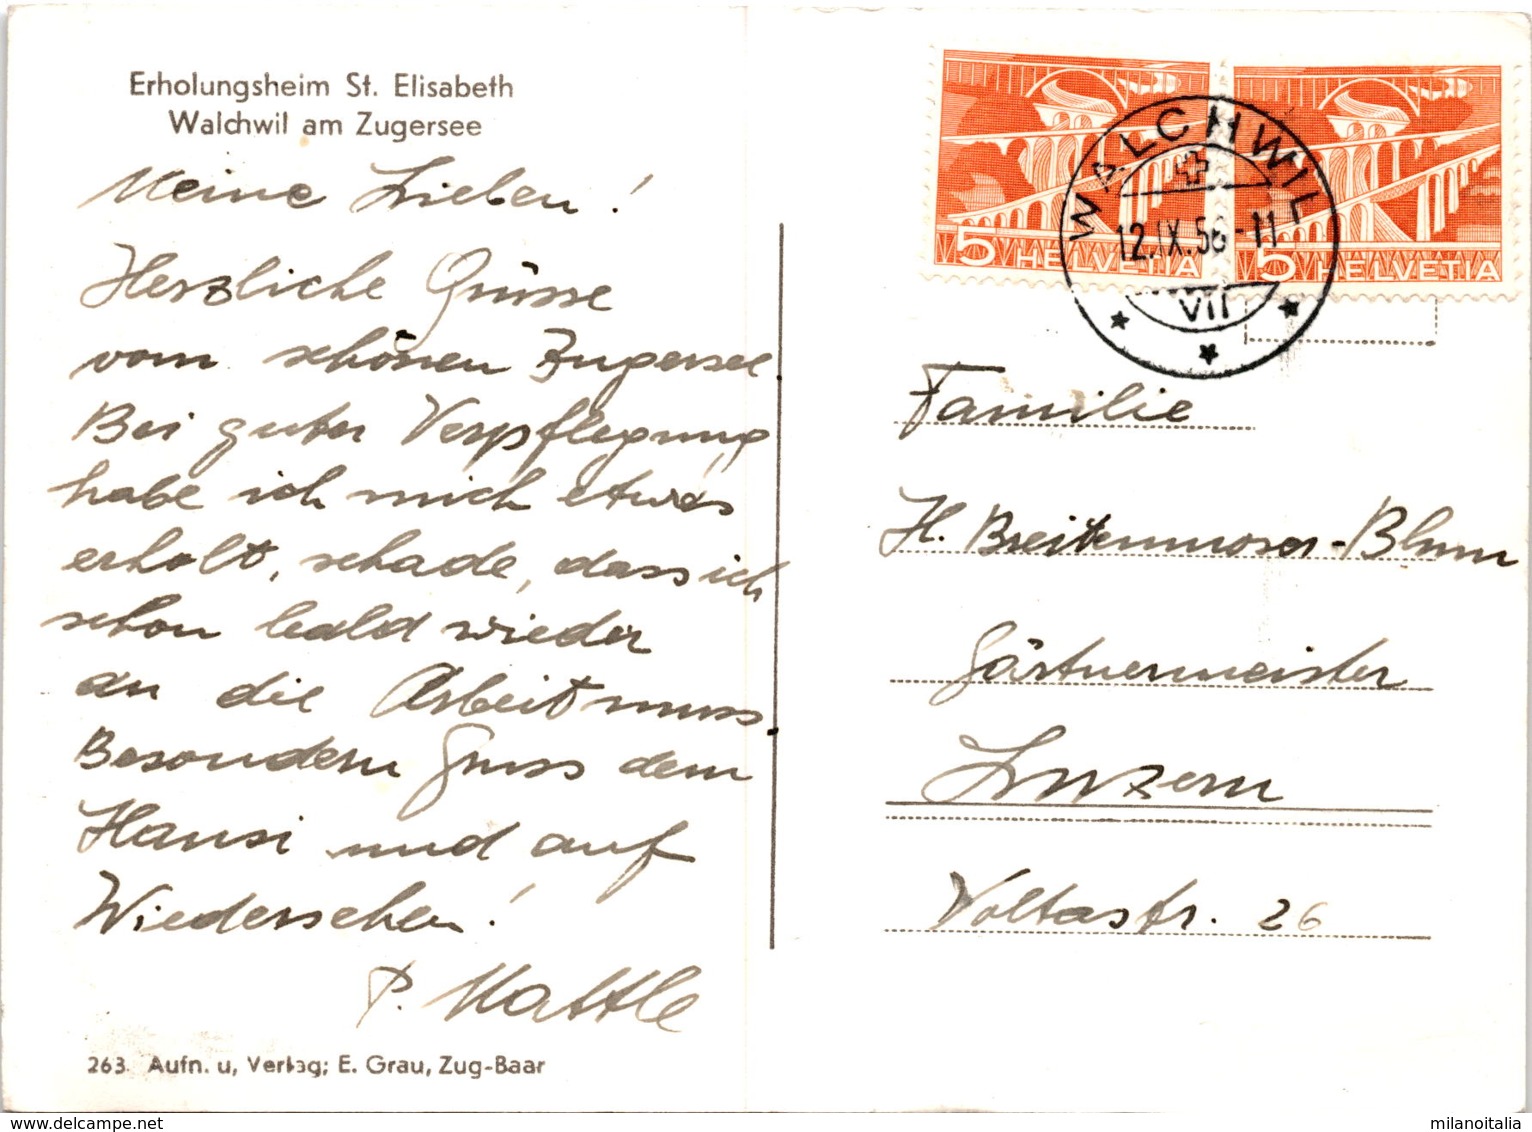 Erholungsheim St. Elisabeth
Walchwil am Zugersee
Meine Lieben!
Herzliche Grüsse
vom schönen Zugersee
Bei guter Verpflegung
habe ich mich etwas
erholt, schade, dass ich
schon bald wieder
an die Arbeit muss.
Besondern Gruss dem
Hansi und auf
Wiedersehen!
P. Mattle
263. Aufn. u, Verlag; E. Grau, Zug-Baar
5 HELVETIA
5 HELVETIA
WALCHWIL
12.IX.56-11
VII
Familie
H. Breitenmoser-Blum
Gärtnermeister
Luzern
Voltastr. 26
delcampe.net
milanoitalia